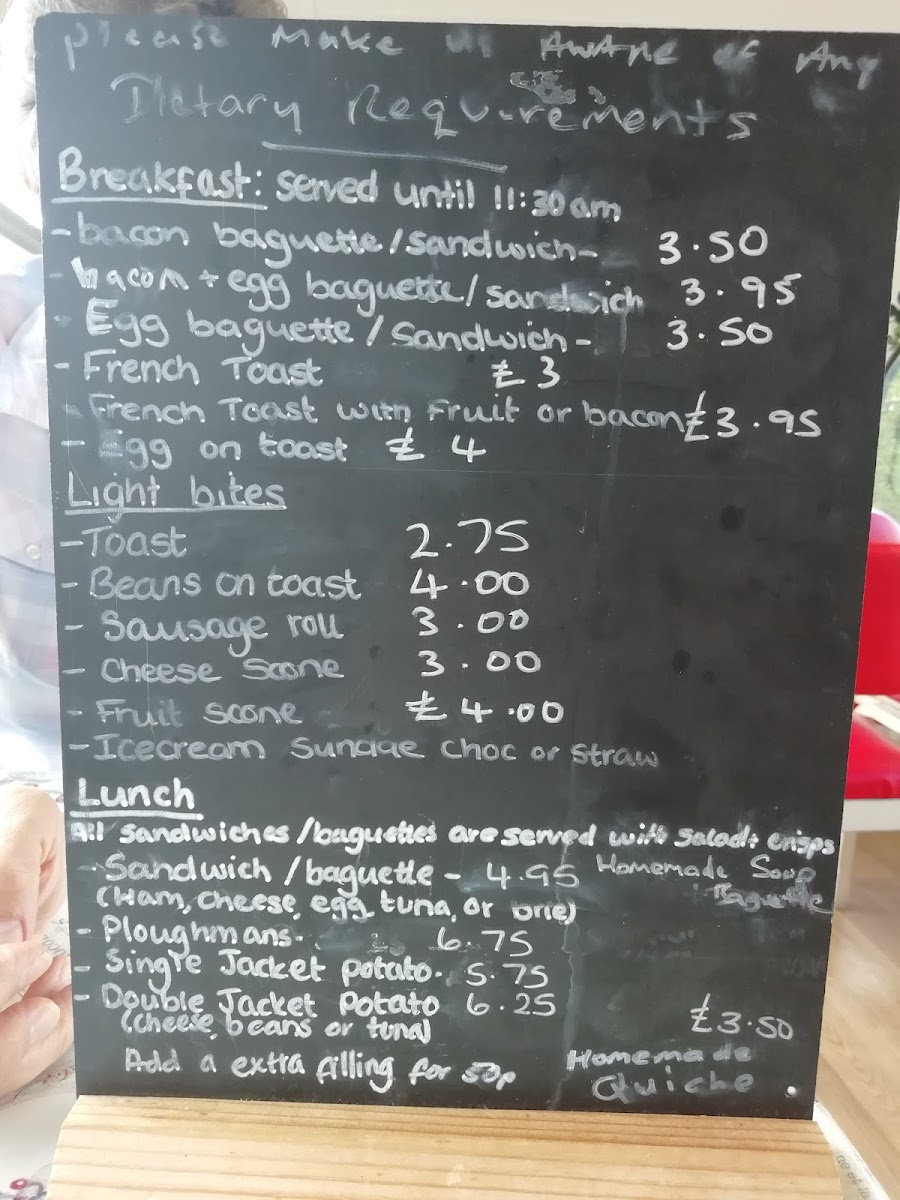 please Make us Aware of Any
Dietary Requirements
Breakfast: served until 11:30am
- bacon baguette/sandwich - 3.50
- bacon + egg baguette/sandwich 3.95
- Egg baguette/Sandwich - 3.50
- French Toast £3
- French Toast with Fruit or bacon £3.95
- Egg on toast £4
Light bites
- Toast 2.75
- Beans on toast 4.00
- Sausage roll 3.00
- Cheese Scone 3.00
- Fruit scone £4.00
- Icecream Sundae Choc or Straw
Lunch
All sandwiches/baguettes are served with salad + crisps
- Sandwich/baguette - 4.95
(Ham, cheese, egg, tuna, or brie)
- Ploughmans. 6.75
- Single Jacket potato. 5.75
- Double Jacket Potato 6.25
(cheese, beans or tuna)
Add a extra filling for 50p
Homemade Soup
Baguette
£3.50
Homemade
Quiche